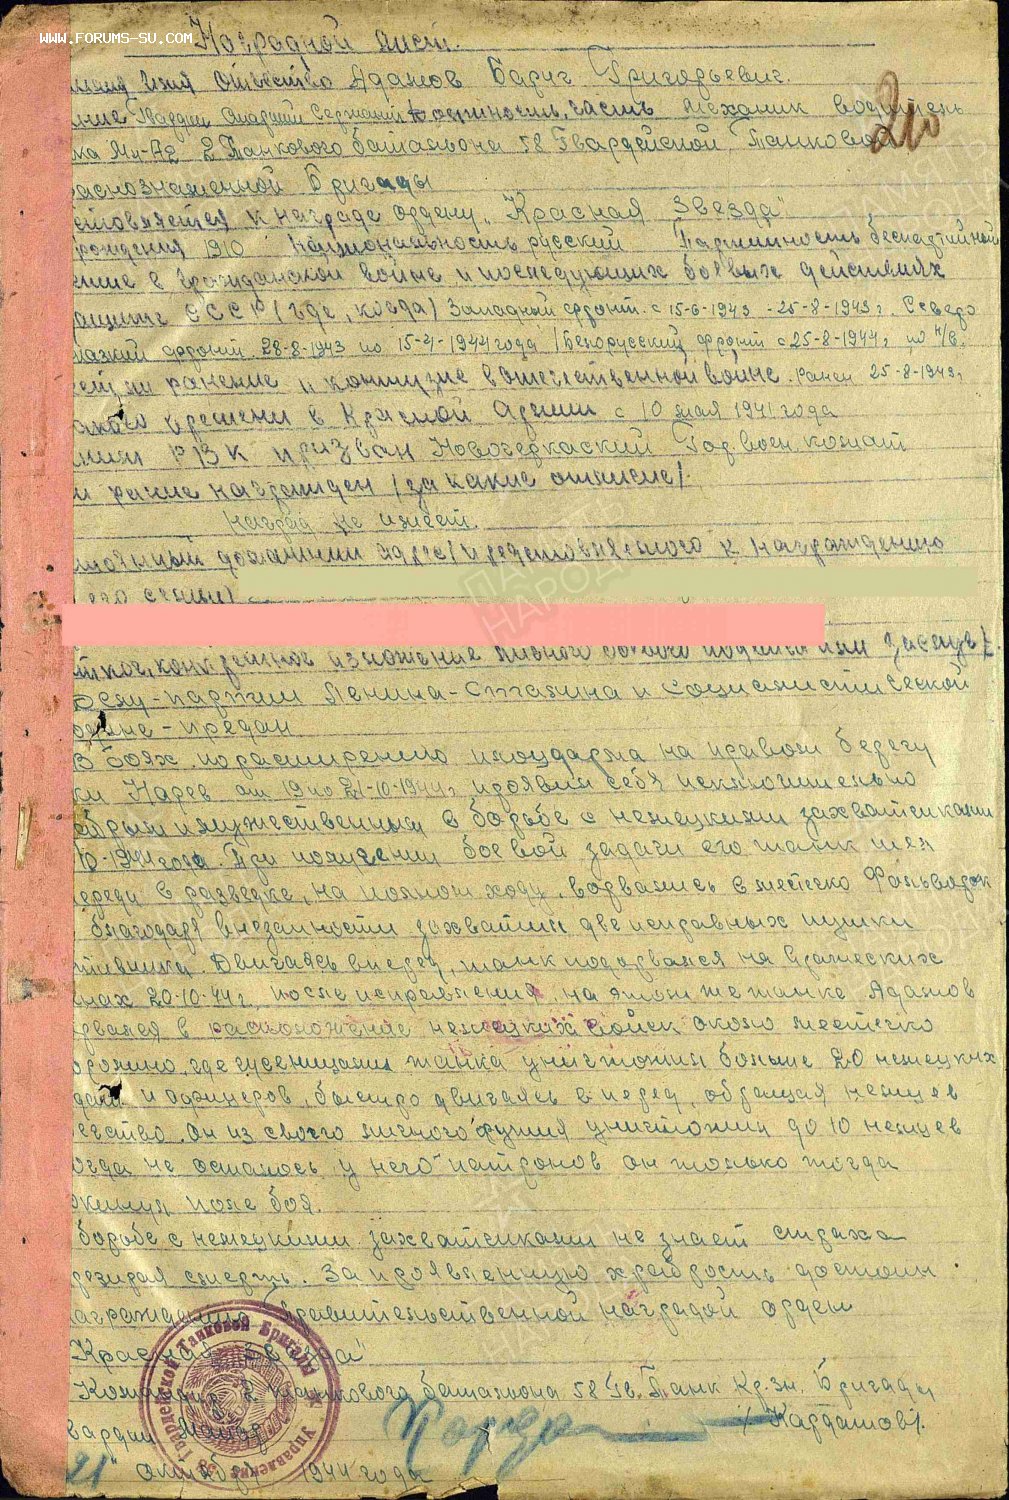 WWW.FORUMS-SU.COM
Наградной лист.
Имя Отчество Адамов Барич Григорьевич.
Гвардии Старший Сержант Должность, часть механик водитель
ка Мк-А2 2 Танкового батальона 58 Гвардейской Танковой
раснознаменной Бригады
210
к награде ордену „Красная Звезда"
рождения 1910 Национальность русский Партийность беспартийный
в гражданской войне и последующих боевых действиях
СССР (где, когда) Западный фронт с 15-6-1943 - 25-8-1943 г. Северо
фронт 28-8-1943 по 15-4-1944 года / Белорусский фронт с 25-8-1944 г по н/в.
ли ранение и контузие в отечественной войне. Ранен 25-8-1943 г
какого времени в Красной Армии с 10 мая 1941 года
РВК призван Новочеркаский Горвоенкомат
ранее награжден (за какие отличие)
Наград не имеет.
домашний адрес представляемого к награждению
его семьи)
конкретное изложение личного боевого подвига или
Делу - партии Ленина - Сталина и Социалистической
- предан
В боях по расширению плацдарма на правом берегу
ки Нарев от 19 по 21-10-1944 г проявил себя исключительно
и мужественным в борьбе с немецкими захватчиками
10-1944 года. При получении боевой задачи его танк шел
переди в разведке, на полном ходу, ворвались в местеко Фольварок
благодаря внезапности захватили две исправных пушки
Двигаясь вперед, танк подорвался на вражеских
нах 20-10-44 г. После исправления, на этом же танке Адамов
рвался в расположение немецких войск около местечко
где гусеницами танка уничтожил больше 20 немецких
дат и офицеров, быстро двигаясь вперед, обращая немцев
бегство. Он из своего личного оружия уничтожил до 10 немцев
огда не осталось у него патронов он только тогда
окинул поле боя.
борьбе с немецкими захватчиками не знает страха
резирая смерть. За проявленную храбрость достоин
награждению Правительственной наградой орден
Красная Звезда"
Командир 2 танкового батальона 58 Гв. Танк Кр. зн. Бригады
вардии Майор
/ Кардашов /.
21" октября 1944 года
Гвардейской Танковой Бригады ★ Управление 58
ПАМЯТЬ НАРОДА